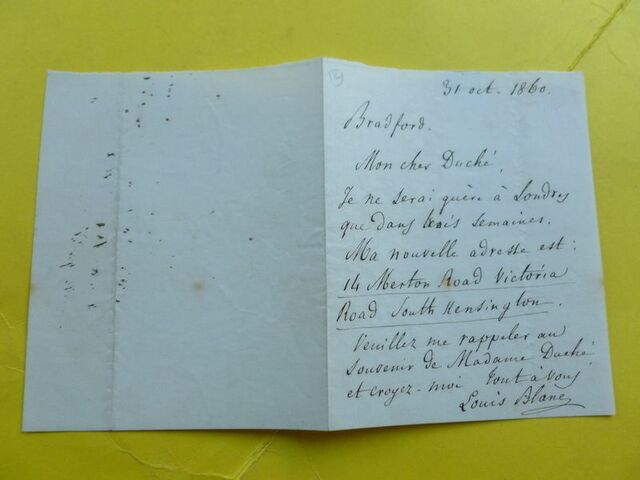 31 oct. 1860.
Bradford.
Mon cher Duché,
Je ne serai guère à Londres
que dans trois semaines.
Ma nouvelle adresse est :
14 Merton Road Victoria
Road South Kensington.
Veuillez me rappeler au
souvenir de Madame Duché
et croyez-moi Tout à vous,
Louis Blanc